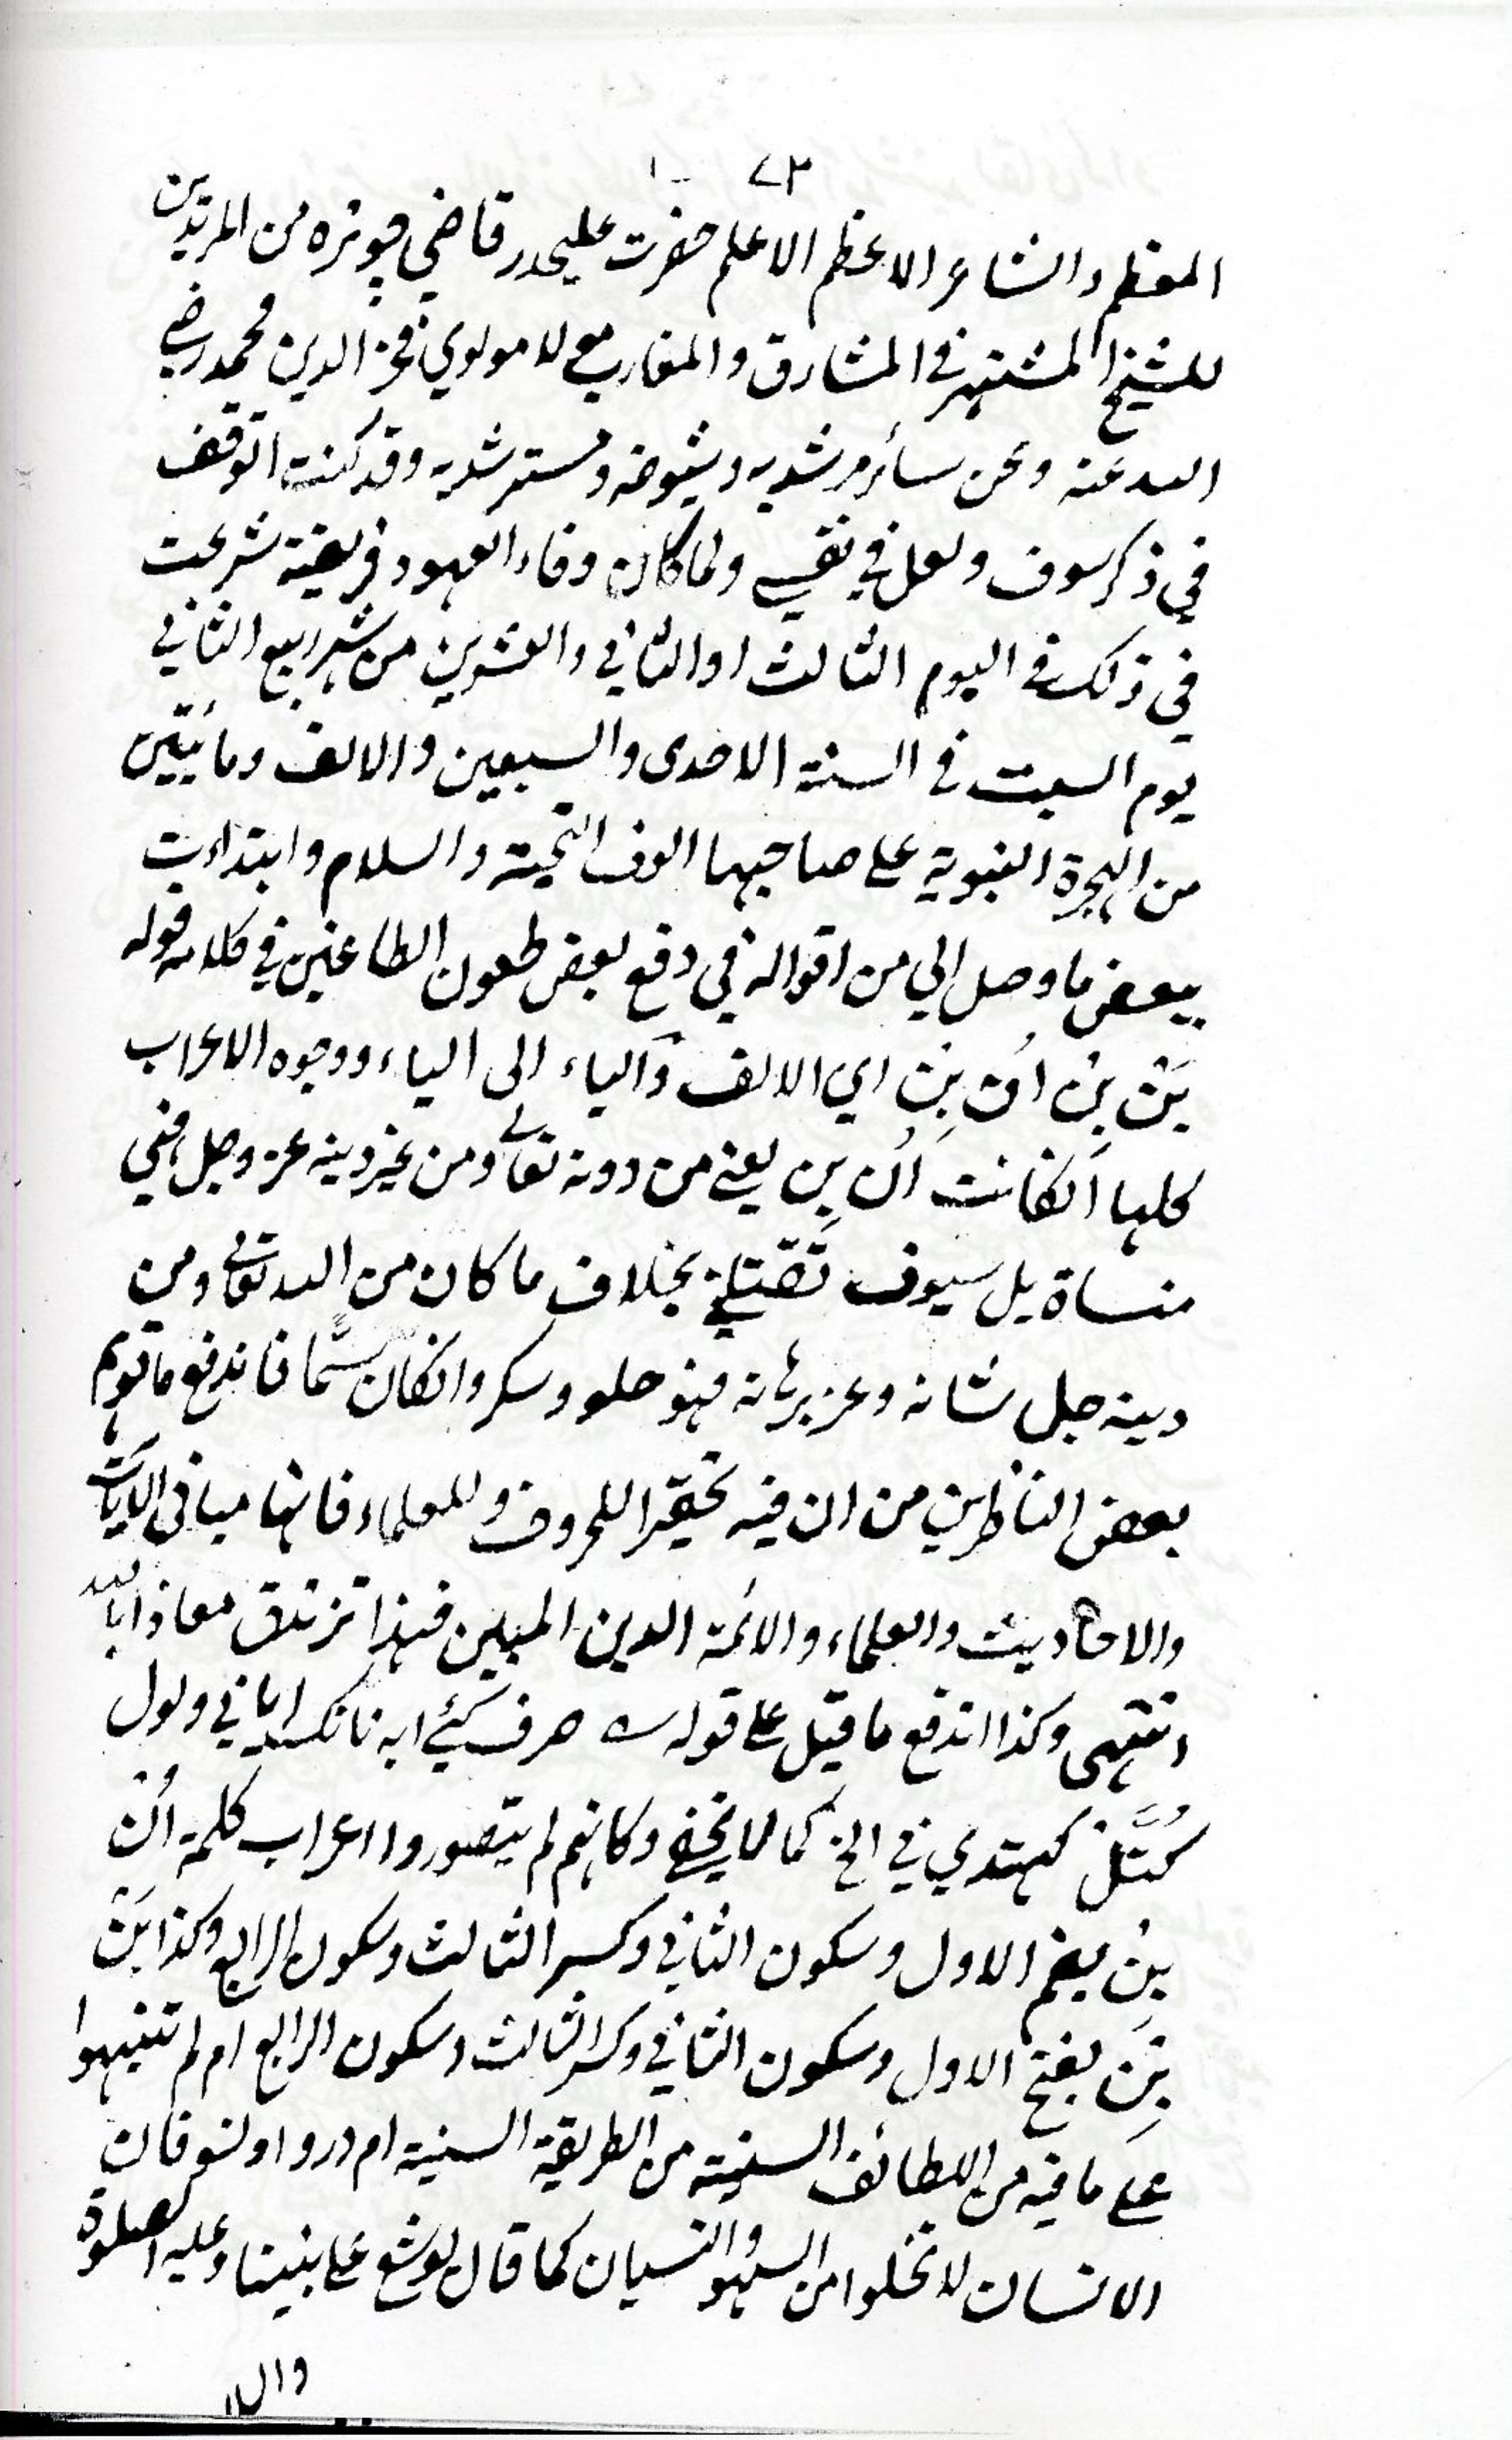 ٧٣
المعظم والشاعر الاعظم الاعلم حضرت عليحدر قاضي من المريدين
للشيخ المشتهر في المشارق والمغارب مولوي فخر الدين محمد رضي
الله عنه وعن سائر مرشديه وشيوخه ومسترشديه وقد كنت اتوقف
في ذكر سوف ولعل في نفسي ولما كان وفاء العهود فريضة شرعت
في ذلك في اليوم الثالث او الثاني والعشرين من شهر ربيع الثاني
يوم السبت في السنة الاحدى والسبعين والالف ومائيتين
من الهجرة النبوية على صاحبها الوف التحية والسلام وابتداءت
ببعض ما وصل الي من اقواله في دفع بعض طعون الطاعنين في كلامه قوله
بَنْ بِنْ اُنْ بِنْ اي الالف والياء الى الياء ووجوه الاعراب
كلها انكانت اُنْ بِنْ يعني من دونه تعالى ومن غير دينه عز وجل ففي
منساة بل سيوف تقتلني بخلاف ما كان من الله تعالى ومن
دينه جل شانه وعز برهانه فهو حلو وسكر وانكان سمًّا فاندفع ما توهم
بعض الناظرين من ان فيه تحقيرا للحروف وللعلماء فانها مباني الايات
والاحاديث والعلماء والائمة الدين المبين فهذا تزندق معاذا بالله
انتهى وكذا اندفع ما قيل على قوله حرف
في الخ كما لا يخفى وكانهم لم يتصوروا اعراب كلمة اُنْ
بِنْ بضم الاول وسكون الثاني وكسر الثالث وسكون الرابع وكذا بَنْ
بِنْ بفتح الاول وسكون الثاني وكسر الثالث وسكون الرابع ام لم تنبهوا
على ما فيه من اللطائف السنية من الطريقة السنية ام دروا ونسو فان
الانسان لا تخلوا من السهو والنسيان كما قال يوشع على نبينا وعليه الصلوة